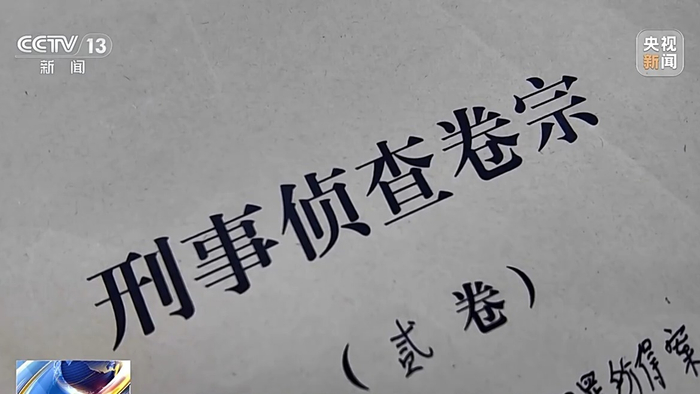 CCTV 13
新闻
央视
新闻
刑事侦查卷宗
（贰卷）
得案